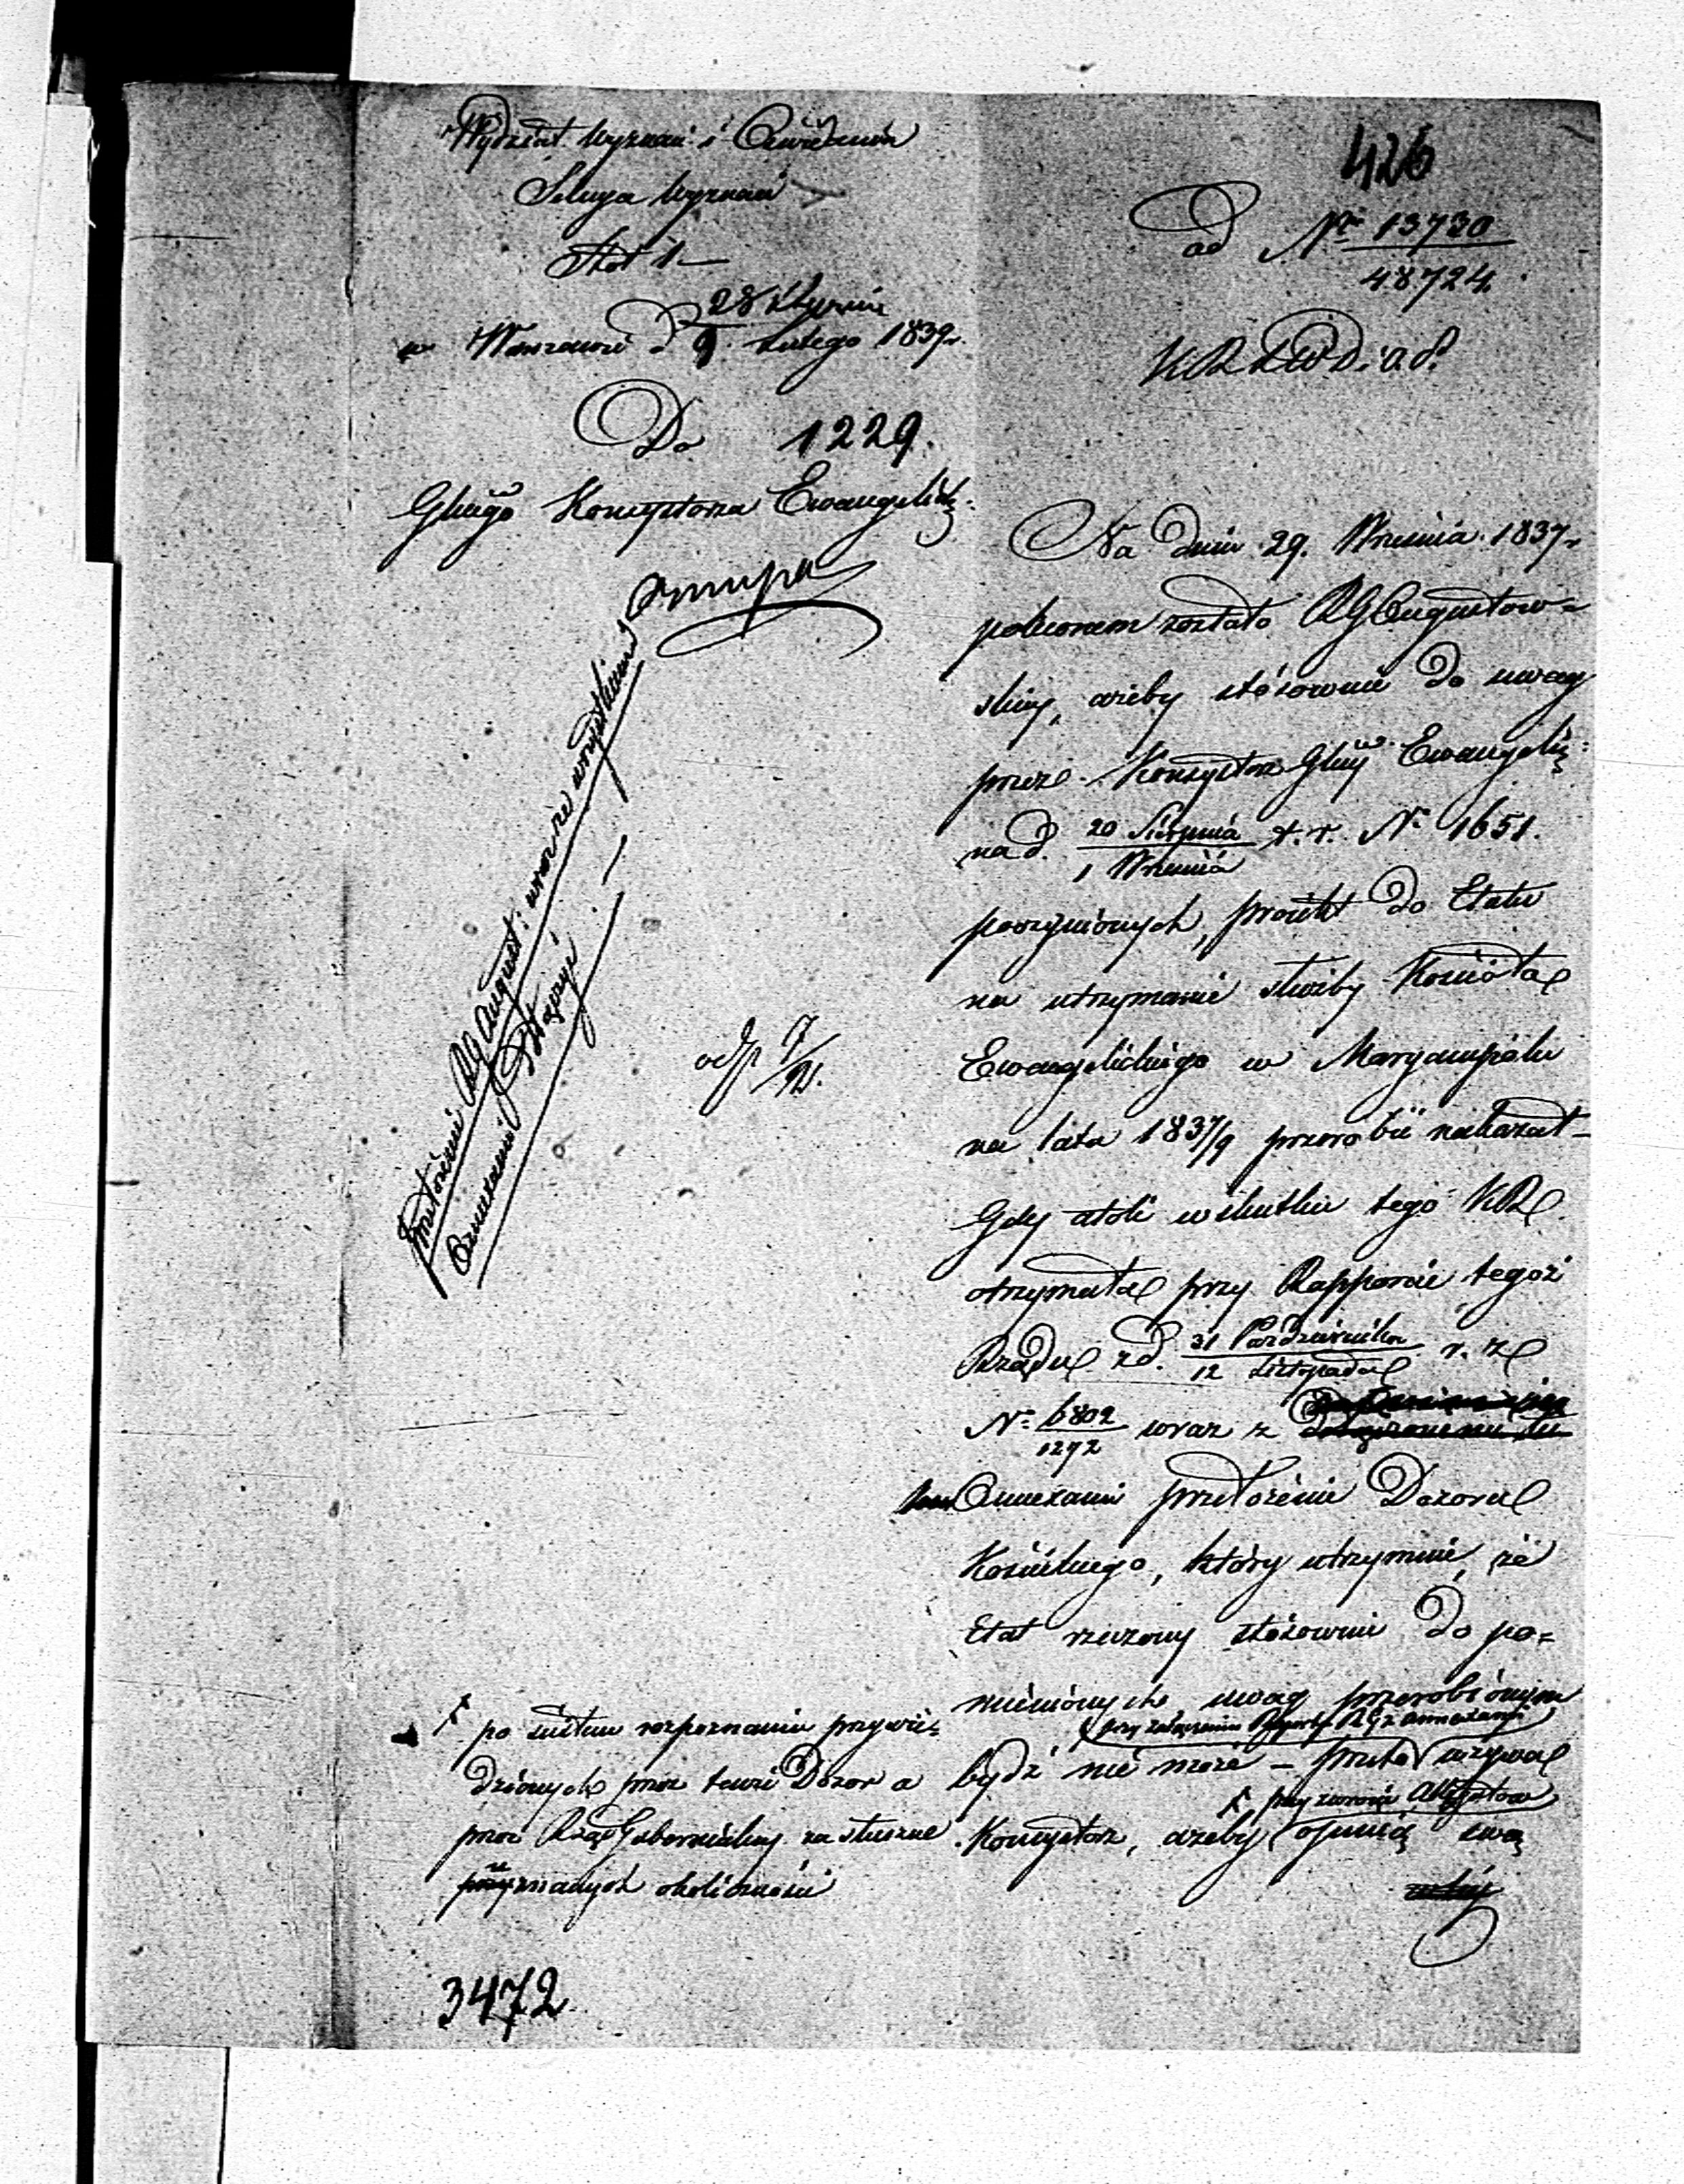 Wydział Wyznań i Oświecenia
Sekcya Wyznań
Stół 1
w Warszawie d. 28 Stycznia
9 Lutego 1839 r.
Do 1229.
Głwgo Konsystorza Ewangelick:
426
ad Nr 13730
48724.
KRSWD i OP.
Na dniu 29. Września 1837 r
poleconem zostało RG Augustow=
skiey, ażeby stósownie do uwag
przez Konsystorz Głwy Ewangelic:
na d. 20 Sierpnia
1 Września t. r. Nr 1651.
poczynionych, proiekt do Etatu
na utrzymanie służby Kościoła
Ewangelickiego w Maryampolu
na lata 1837/9 przerobić nakazał –
Gdy atoli w skutku tego KR
otrzymała przy Rapporcie tegoż
Rządu z d. 31 Października
12 Listopada r. z
Nr 6802
1292 wraz z
Annexami przełożenie Dozoru
Kościelnego, który utrzymuie, że
Etat rzeczony stósownie do po=
mienionych uwag przerobionym
przy załączeniu Raportu RG z annexami
bydź nie może – przeto wzywa
przy zwrocie
Konsystorz, ażeby opinią swą
po ścisłem rozpoznaniu przywie=
dzionych przez tenże Dozor a
przez Rząd Gubernialny za słuszne
przyznanych okoliczności
Przełożenie RG August: wraz ze wszystkiemi
Annexami
odp 7/12.
3472